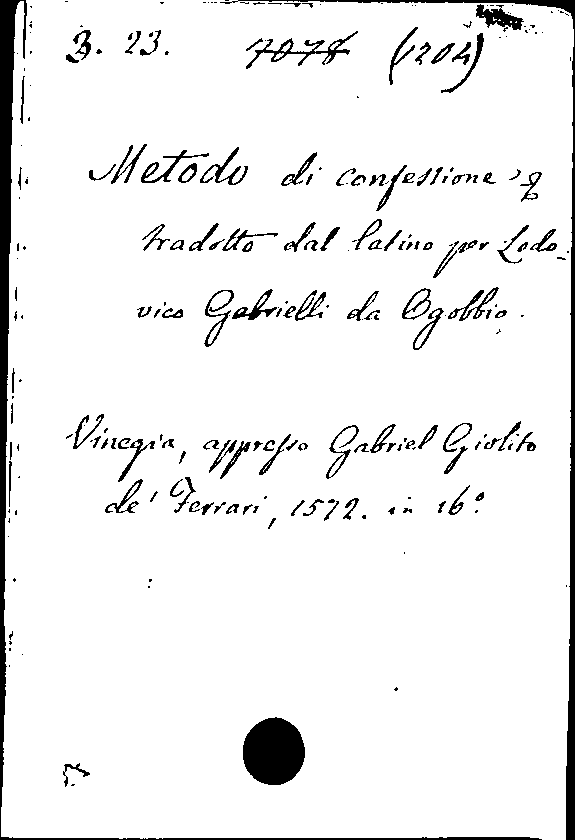 B. 23. 7078 (1204)
Metodo di confessione
tradotto dal latino per Lodo-
vico Gabrielli da Ogobbio.
Vinegia, appresso Gabriel Giolito
de' Ferrari, 1572. in 16°.